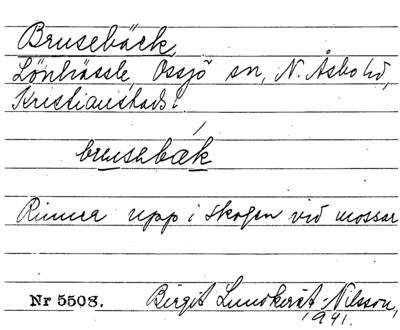 Brusebäck,
Lönhässle, Össjö sn, N. Åsbo hd,
Kristianstads l.
brusabæk
Rinner upp i skogen vid mossar
Nr 5508. Birgit Lundkvist-Nilsson,
1941.